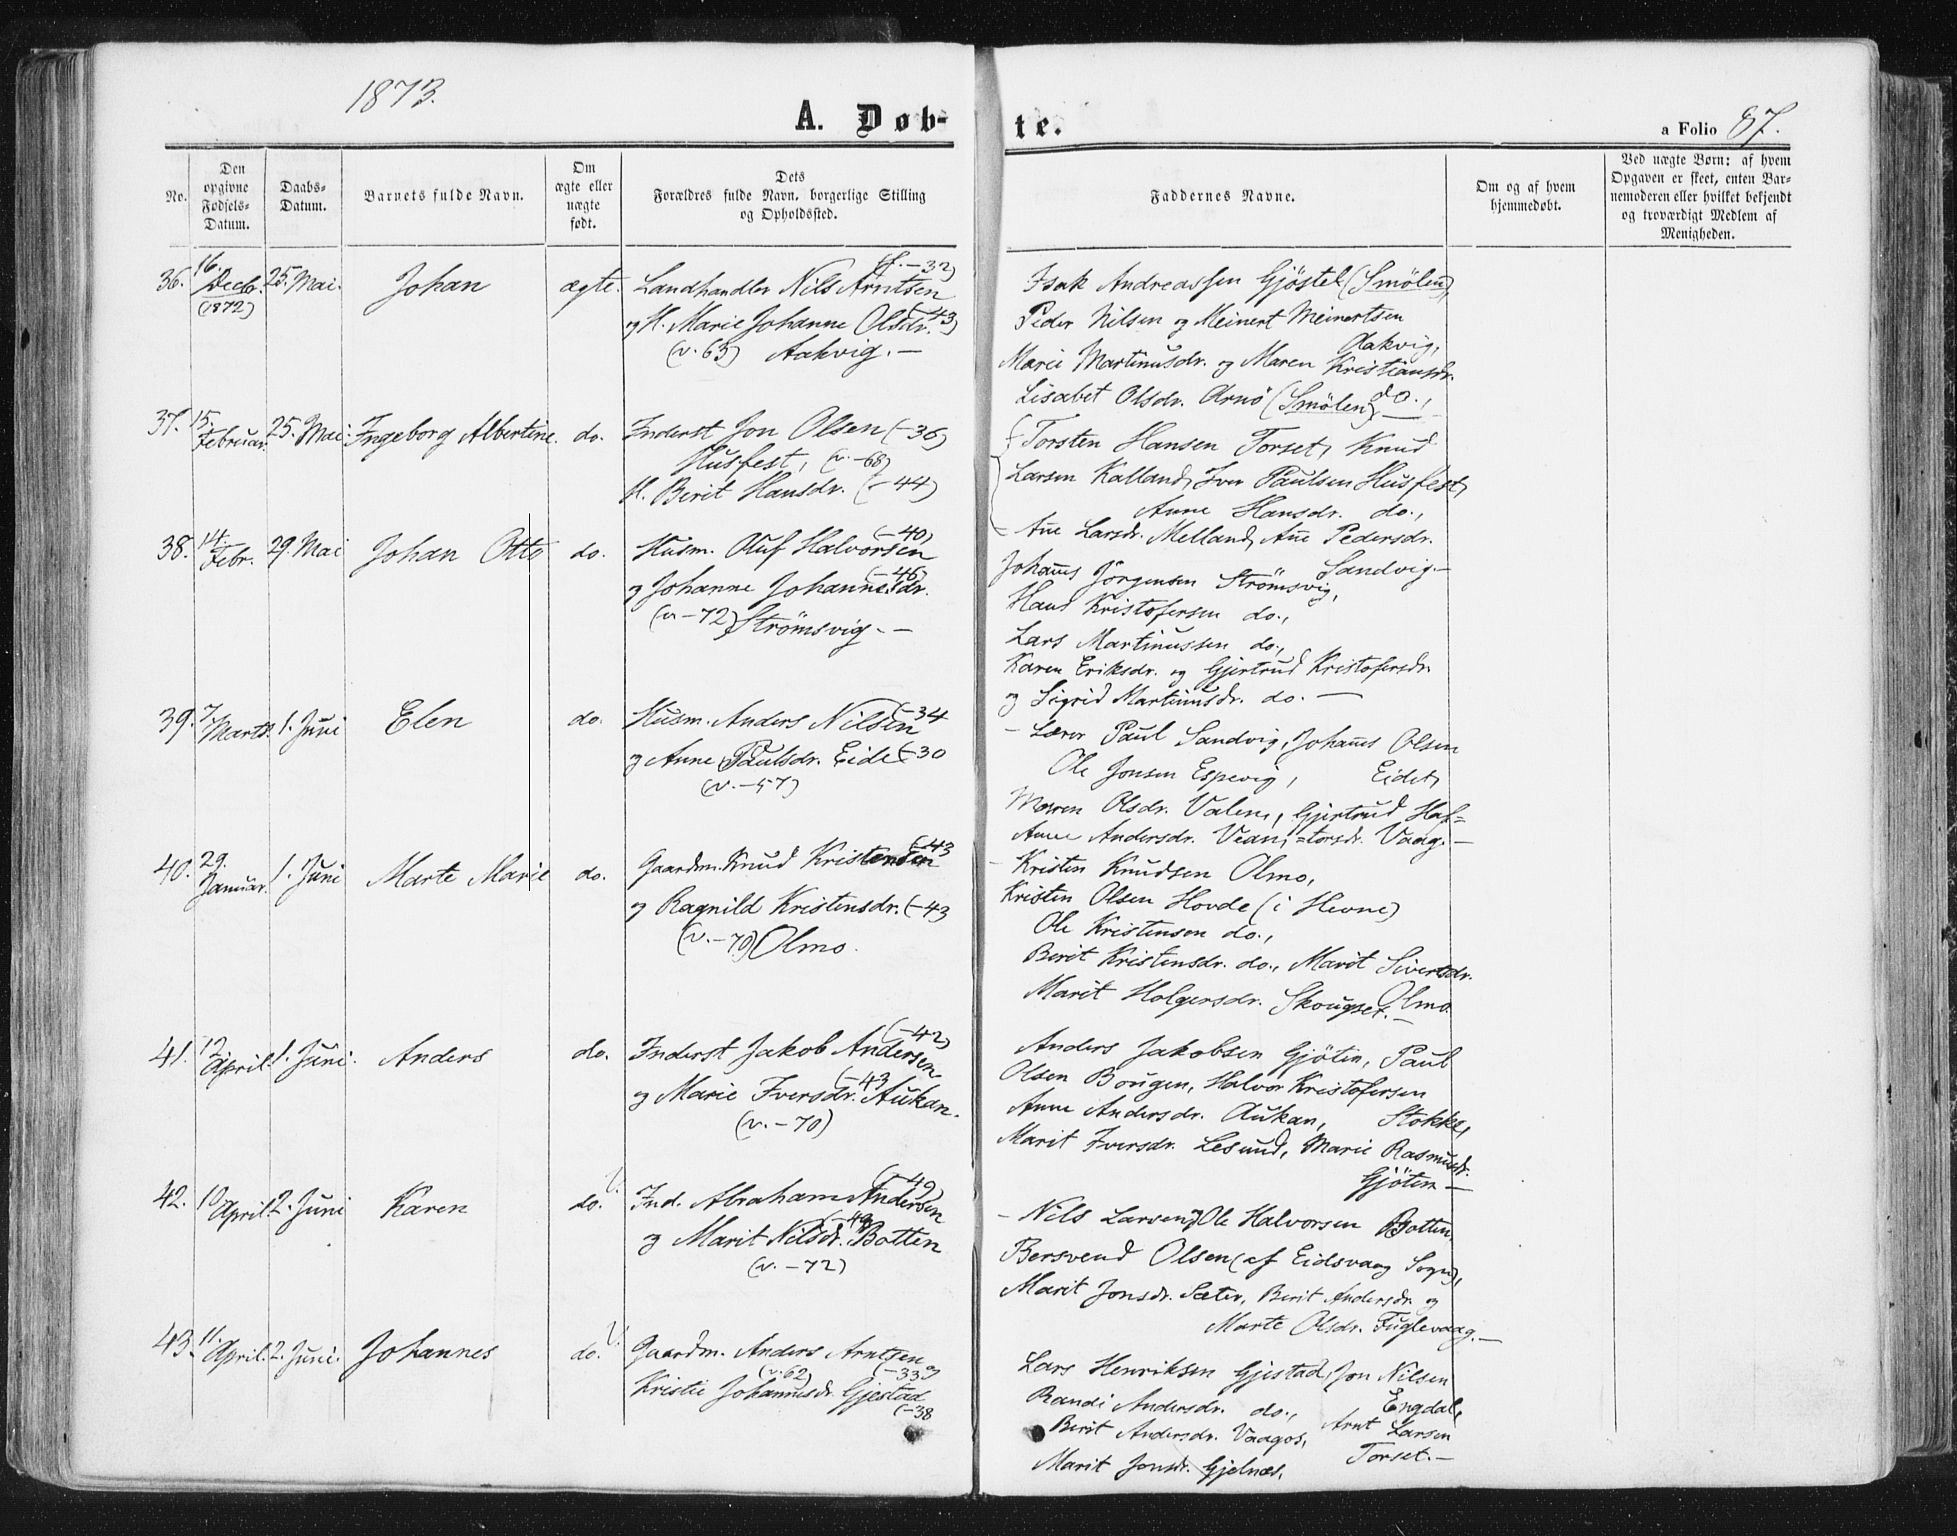 1873.
A. Døb-
te.
a Folio 87.
No.
Den
opgivne
Fødsels-
Datum.
Daabs-
Datum.
Barnets fulde Navn.
Om
ægte eller
uægte
født.
Dets
Forældres fulde Navn, borgerlige Stilling
og Opholdssted.
Faddernes Navne.
Om og af hvem
hjemmedøbt.
Ved uægte Børn: af hvem
Opgaven er skeet, enten Bar-
nemoderen eller hvilket bekjendt
og troværdigt Medlem af
Menigheden.
36. 16. Decbr. (1872) 25. Mai. Johan ægte.
Landhandler Nils Arntsen (f. -32)
og H. Marie Johanne Olsdr. (-43)
(v. 63) Aakvig. -
Isak Andreassen Gjöstel (Smölen),
Peder Nilsen og Meinert Meinertsen
Aakvig,
Marie Martinusdr. og Maren Kristiansdr.
do.,
Lisabet Olsdr. Arnö (Smölen). -
37. 15. Februar. 25. Mai. Ingeborg Albertine. do.
Inderst Jon Olsen (-36)
Husfest, (v. -68)
H. Berit Hansdr. (-44)
Torsten Hansen Torset, Knud
Larsen Kalland, Iver Paulsen Husfest,
Anne Hansdr. do.,
Ane Larsdr. Melland, Ane Pedersdr.
Sandvig. -
38. 14. Febr. 29. Mai Johan Otto do.
Husm. Oluf Halvorsen (-40)
og Johanne Johannesdr. (-46)
(v. -72) Strömsvig. -
Johans Jörgensen Strömsvig,
Hans Kristofersen do.,
Lars Martinussen do.,
Karen Eriksdr. og Gjertrud Kristofersdr.
og Sigrid Martinusdr. do. -
39. 7. Marts. 1. Juni Elen do.
Husm. Anders Nilsen (-34
og Anne Paulsdr. Eide (-30
(v. -57)
- Lærer Paul Sandvig, Johans Olsen
Ole Jonsen Espevig, Eidet,
Maren Olsdr. Valen, Gjertrud Haf=
Anne Andersdr. Vean, =torsdr. Vaag. -
40. 29. Januar. 1. Juni Marte Marie do.
Gaardm. Knud Kristensen (-43
og Ragnild Kristensdr. (-43
(v. -70) Olmo.
- Kristen Knudsen Olmo,
Kristen Olsen Hovde (i Hevne)
Ole Kristensen do.,
Berit Kristensdr. do., Marit Sivertsdr.
Olmo.
Marit Holgersdr. Skougset. -
41. 12. April. 1. Juni. Anders do.
Inderst Jakob Andersen (-42)
og Marie Iversdr. Aukan. (-43
(v. -70)
Anders Jakobsen Gjöten, Paul
Olsen Bougen, Halvor Kristofersen
Anne Andersdr. Aukan, Stokke,
Marit Iversdr. Lesund, Marie Rasmusdr.
Gjöten -
42. 10. April. 2. Juni Karen do.
Ind. Abraham Andersen (-49)
og Marit Nilsdr. Botten (-49
(v. -72)
- Nils Larsen, Ole Halvorsen Botten
Bersvend Olsen (af Eidsvaag Sogn),
Marit Jonsdr. Sæter, Berit Andersdr. og
Marte Olsdr. Fuglevaag. -
43. 11. April. 2. Juni. Johannes do.
Gaardm. Anders Arntsen og
(v. 62) (-33)
Kristie Johannesdr. Gjestad
(-38
Lars Henriksen Gjestad, Jon Nilsen
Randi Andersdr. do., Engdal,
Berit Andersdr. Vaagos, Arnt Larsen
Marit Jonsdr. Gjelnæs, Torset. -